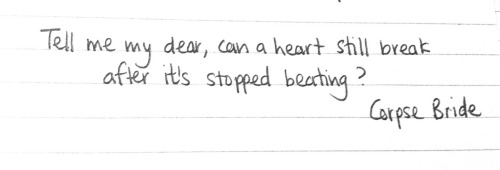 Tell me my dear, can a heart still break
after it's stopped beating?
Corpse Bride